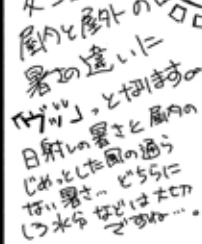 屋内と屋外の
暑さの違いに
「ヴッ」っとなります。
日射しの暑さと屋内の
じめっとした風の通ら
ない暑さ… どちらに
しろ水分などは大切
ですね…。